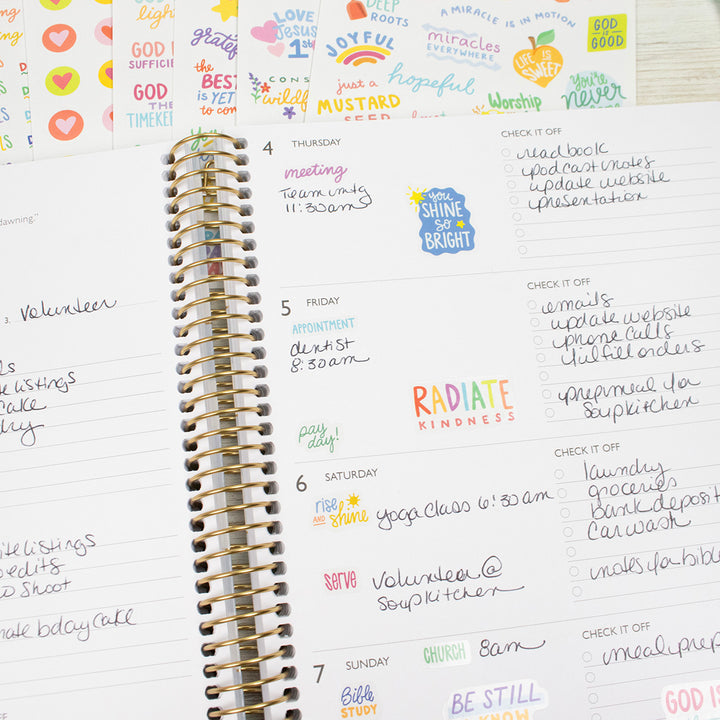 GOD IS
SUFFICIE
GOD
THE
TIMEKEE
light
grateful
the BEST
is YET
to com
LOVE
Jesus
1st
CONS
wildf
DEEP
ROOTS
JOYFUL
just a
MUSTARD
SEED
A MIRACLE IS IN MOTION
miracles
EVERYWHERE
hopeful
LIFE is
SWEET
Worship
GOD
IS
GOOD
You're
NEVER
dawning."
3. Volunteer
listings
cake
ite listings
edits
Shoot
bday cake
4 THURSDAY
meeting
Team mtg
11:30am
you
SHINE
SO
BRIGHT
CHECK IT OFF
read book
podcast notes
update website
presentation
5 FRIDAY
APPOINTMENT
dentist
8:30am
pay
day!
RADIATE
KINDNESS
CHECK IT OFF
emails
update website
phone calls
fulfill orders
prep meal for
Soup kitchen
6 SATURDAY
rise
AND shine
yoga class 6:30am
serve
Volunteer @
Soup kitchen
CHECK IT OFF
laundry
groceries
bank deposit
Car wash
notes for bible
7 SUNDAY
CHURCH 8am
Bible
STUDY
BE STILL
KNOW
CHECK IT OFF
meal prep
GOD IS